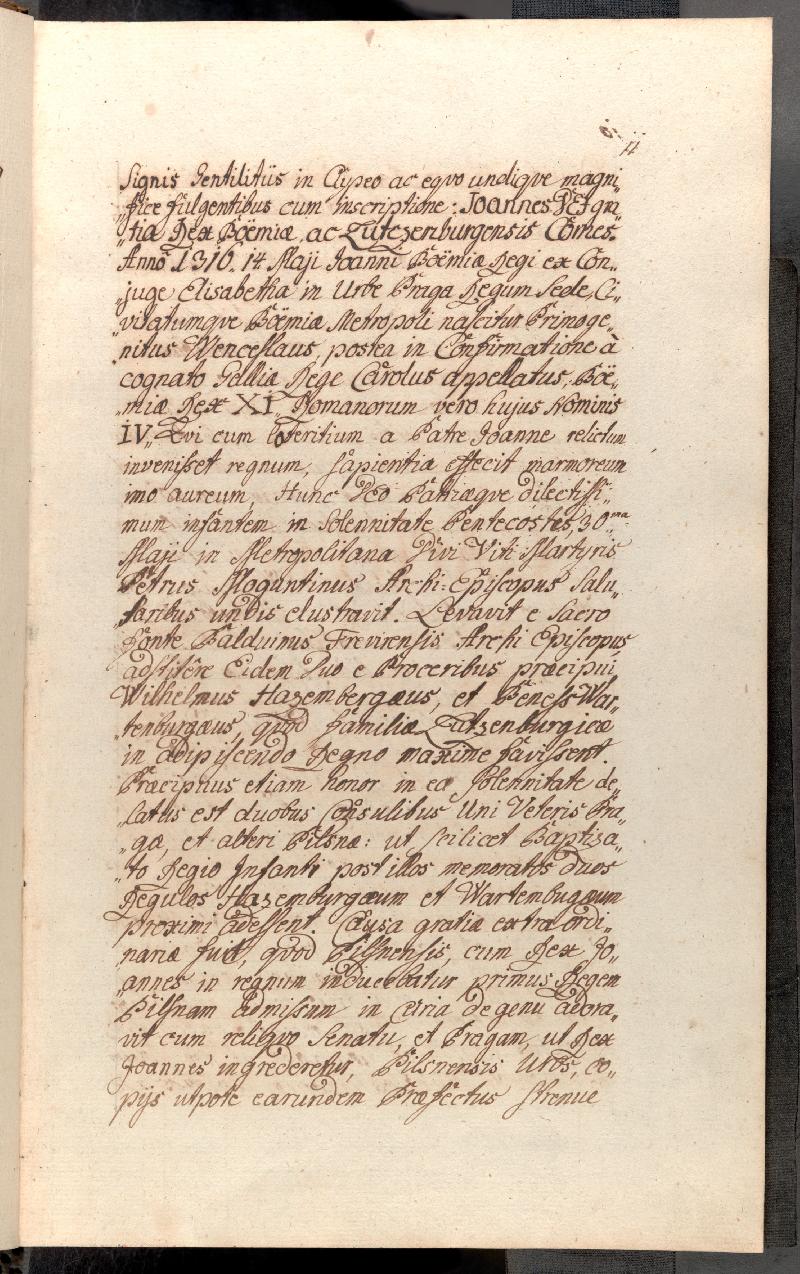 Signis Gentilitiis in Clypeo ac eqvo undiqve magni„
„fice fulgentibus cum inscriptione: Joannes DEI gra„
„tia Rex Boëmiæ, ac Lutczenburgensis Comes.
Anno 1316. 14 Maji Joanni Boëmiæ Regi ex Con„
„juge Elisabetha in Urbe Praga Regum Sede, Ci„
„vitatumqve Boëmiæ Metropoli nascitur Primoge„
„nitus Wenceslaus, postea in Confirmatione à
cognato Galliæ Rege Carolus appellatus, Boë„
„miæ Rex XI. Romanorum vero hujus Nominis
IV. Qvi cum lateritium a Patre Joanne relictum
invenisset regnum, sapientia effecit marmoreum
imo aureum. Hunc Deo Patriæqve dilectissi„
mum infantem in solennitate Pentecostes, 30.ma
Maji in Metropolitana Divi Viti Martyris
Petrus Moguntinus Archi-Episcopus Salu„
„taribus undis elustravit. Levavit e Sacro
Fonte Balduinus Trevirensis Archi Episcopus
adstitêre Eidem Duo e Proceribus præcipui
Wilhelmus Hazembergæus, et Beness War„
„tenburgæus, quod familiæ Lutzenburgicæ
in adipiscendo Regno maxime favissent.
Præcipuus etiam honor in ea solennitate de„
„latus est duobus Consulibus Uni Veteris Pra„
„gæ, et alteri Pilsnæ: ut scilicet Baptiza„
„to Regio Infanti post illos memoratos duos
Regulos Hazemburgæum et Wartembugæum
proximi adessent. Causa gratiæ extraordi„
nariæ fuit, quod Pilsnensis, cum Rex Jo„
annes in regnum inducebatur primus Regem
Pilsnam admissum in Curia de genu adora„
vit cum reliqvo Senatu, et Pragam, ut Rex
Joannes ingrederetur, Pilsnensis Urbs, co„
pijs utpote earundem Præfectus strenue